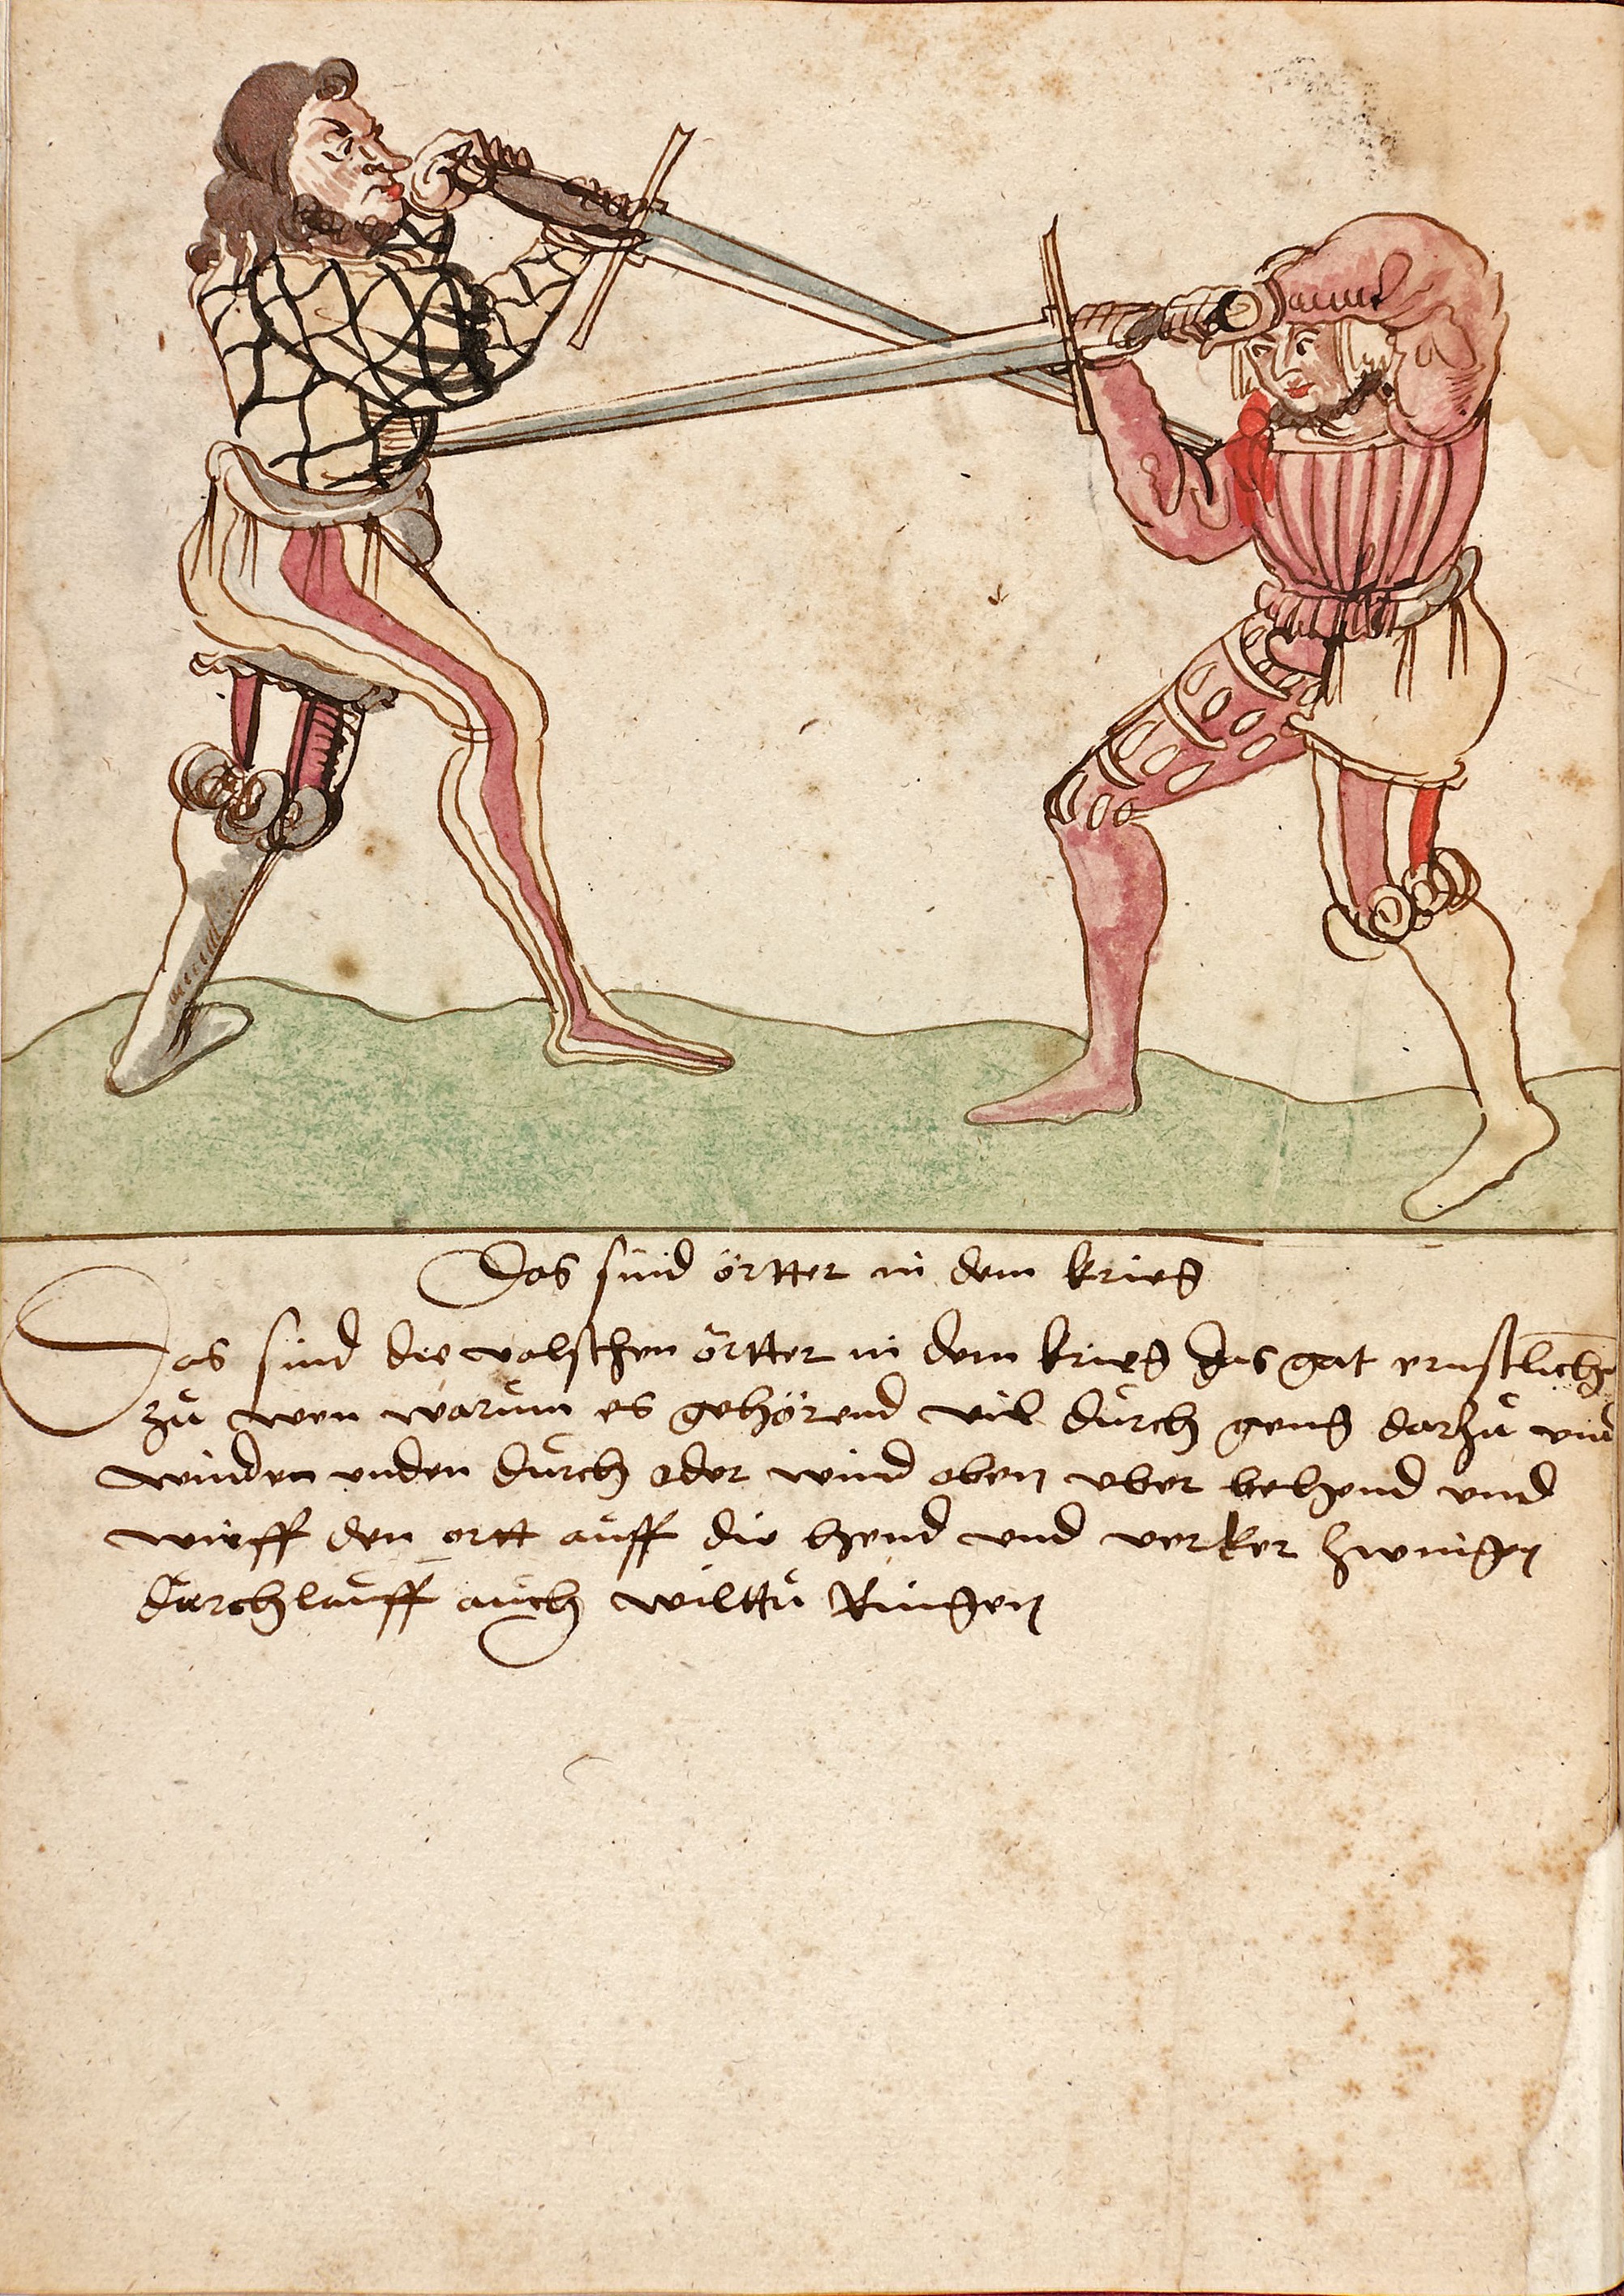 Das sind örtter in dem krieg
Das sind die valschen örtter in dem krieg das gat ernstlich
zů wen warum es gehörend vil durch geng darzů vnd
winden vnden durch oder wind oben vber behend vnd
wirff den ortt auff die hend vnd verker zwingen
durchlauff auch wilttu Ringen